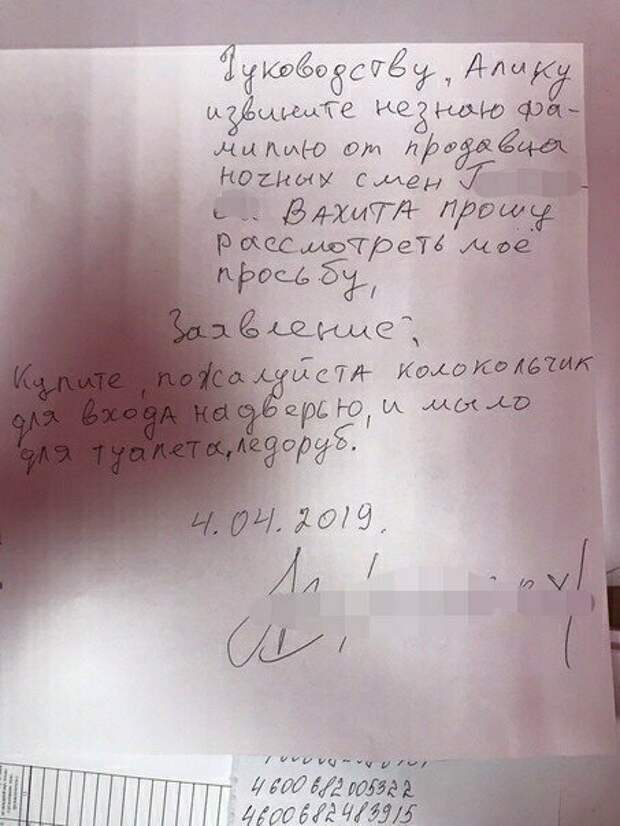 Руководству, Алику
извините незнаю фа-
милию от продавца
ночных смен Г
ВАХИТА прошу
рассмотреть моё
просьбу,
Заявление,
Купите, пожалуйста колокольчик
для входа надверью, и мыло
для туалета, ледоруб.
4.04.2019.
4600682005322
4600682483915